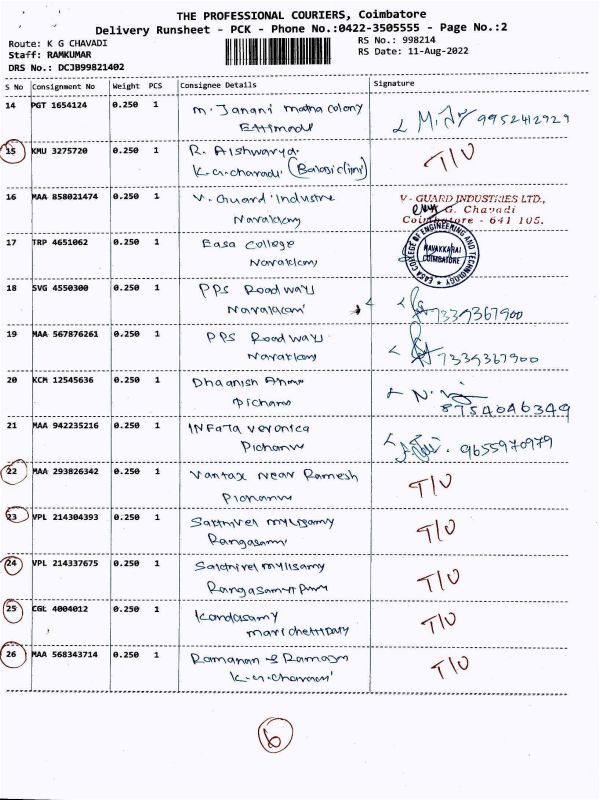 THE PROFESSIONAL COURIERS, Coimbatore
Delivery Runsheet - PCK - Phone No.:0422-3505555 - Page No.:2
Route: K G CHAVADI RS No.: 998214
Staff: RAMKUMAR RS Date: 11-Aug-2022
DRS No.: DCJB99821402
S No Consignment No Weight PCS Consignee Details Signature
14 PGT 1654124 0.250 1 M. Janani Matha colony
Ettimadi 9952412929
15 KMU 3275720 0.250 1 R. Aishwarya T/U
K.G.chavadi (Balaji clini)
16 MAA 858021474 0.250 1 V. Guard Industrie V-GUARD INDUSTRIES LTD.,
Navakkary K.G. Chavadi
Coimbatore - 641 105.
17 TRP 4651062 0.250 1 Easa College EASA COLLEGE OF ENGINEERING AND TECHNOLOGY
Navakkary NAVAKKARAI
COIMBATORE
18 SVG 4550300 0.250 1 PPS Roadways
Navakkari 7339367900
19 MAA 567876261 0.250 1 PPS Roadways
Navakkary 7339367900
20 KCM 12545636 0.250 1 Dhaanish Ahma
Pichanu 8754046349
21 MAA 942235216 0.250 1 INFaTa Veronica
Pichanu 9655970979
22 MAA 293826342 0.250 1 Vantax Near Ramesh T/U
Pichanu
23 VPL 214304393 0.250 1 Sakthivel Mylisamy T/U
Rangasami
24 VPL 214337675 0.250 1 Sakthivel Mylisamy T/U
Rangasamypury
25 CGL 4004012 0.250 1 Kandasamy T/U
Marichettipaly
26 MAA 568343714 0.250 1 Ramanan T/U
K.G.chavadi
6